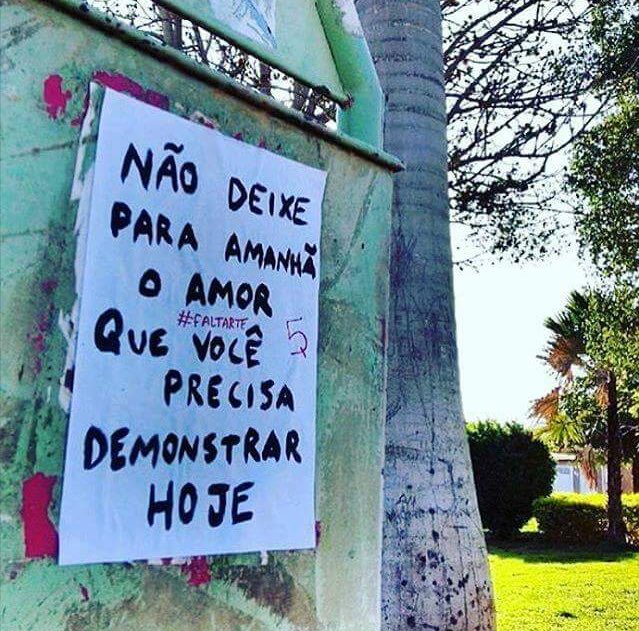 NÃO DEIXE
PARA AMANHÃ
O AMOR
#FALTARTE
QUE VOCÊ 5
PRECISA
DEMONSTRAR
HOJE